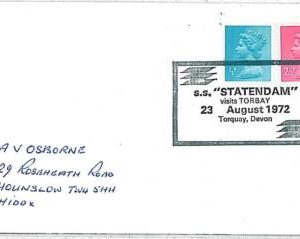 s.s. "STATENDAM"
visits TORBAY
23 August 1972
Torquay, Devon
A V OSBORNE
29 ROSEHEATH ROAD
HOUNSLOW TW4 5HH
MIDDX